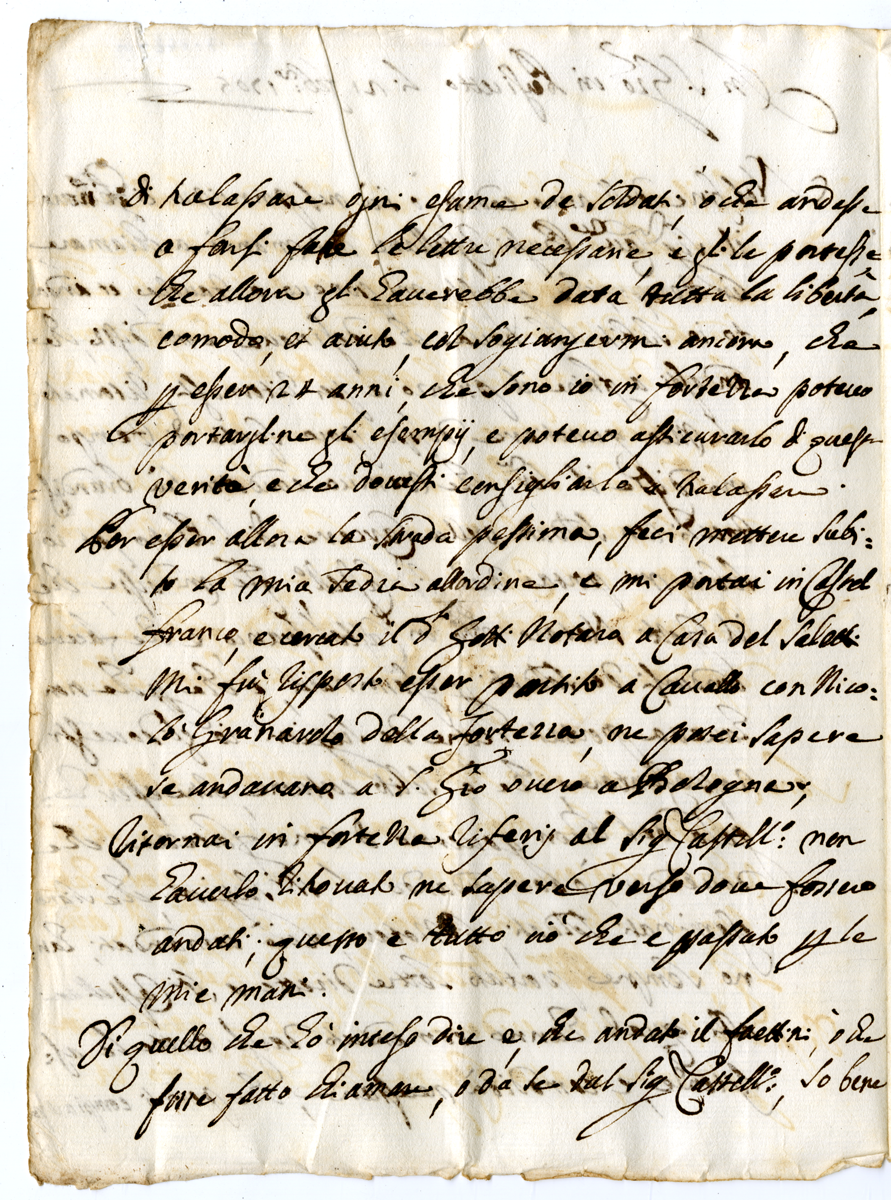 di ralassare ogni esame de soldati, ò che andasse
a farsi fare le lettre necessarie, e gli le portasse
che allora gl' haverebbe datà tutta la libertà,
comodo, et aiuto, col sogiangermi ancora, che
p esser 24 anni, che sono io in fortezza potevo
portargline gli esempij, e potevo assicurarlo di questa
verità, e che dovessi consigliarlo à ralassare.
Per esser allora la strada pessima, feci mettere subi:
to la mia sedia all'ordine, e mi portai in Castel
franco, e cercato il d. Notaro a Casa del
Mi fù risposto esser partito a Cavallo con Nico:
lò Granarolo della fortezza, ne potei sapere
se andavano a S. Gio overo a Bologna;
ritornai in fortezza riferij al Sig Castell.o: non
haverlo ritrovato ne sapere verso dove fossero
andati; questo e tutto ciò che e passato p le
mie mani.
Di quello che hò inteso dire e, che andato il, ò che
fosse fatto chiamare, o da se dal Sig Castell.o:, so bene